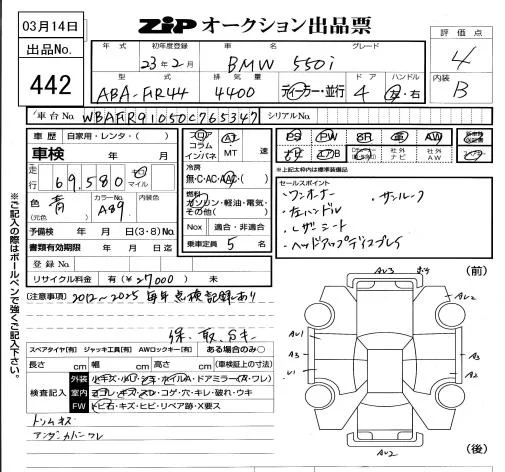 03月14日
ZiP オークション出品票
出品No.
442
評価点
4
内装
B
年式 初年度登録 車名 グレード
23年2月 BMW 550i
型式 排気量 ドア ハンドル
ABA-FR44 4400 ディーラー・並行 4 左・右
車台No. WBAFR91050C765347 シリアルNo.
車歴 自家用・レンタ・( )
車検 年 月
走行 69,580 キロ マイル
色 青 (元色) カラーNo. A89 内装色
予備検 年 月 日(3・8)No.
書類有効期限 年 月 日迄
登録No.
リサイクル料金 有(¥27000) 未
フロア コラム インパネ
AT MT 速
冷房 無・C・AC・AAC・( )
燃料 ガソリン・軽油・電気・その他( )
Nox 適合・非適合
乗車定員 5 名
PS PW SR 革 AW
エアB 社外ナビ 社外AW
※上記太枠内は標準装備品
セールスポイント
・ワンオーナー ・サンルーフ
・左ハンドル
・レザーシート
・ヘッドアップディスプレイ
(注意事項) 2012~2025 毎年点検記録あり
保、取、Sキー
スペアタイヤ[有] ジャッキ工具[有] AWロックキー[有] ある場合のみ○
長さ cm 幅 cm 高さ cm (車検証上の寸法)
検査記入
外装 小キズ・小凹・シミ・ホイルA・ドアミラー(A・ワレ)
室内 ヨゴレ・キズ・スレ・コゲ・穴・キレ・破れ・ウキ
FW トビ石・キズ・ヒビ・リペア跡・X要ス
トランクキズ
アンダーカバーワレ
※ご記入の際はボールペンで強くご記入下さい。
(前)
AV3
AV2
AV1
A3
A3
A2
V1
AV2
(後)